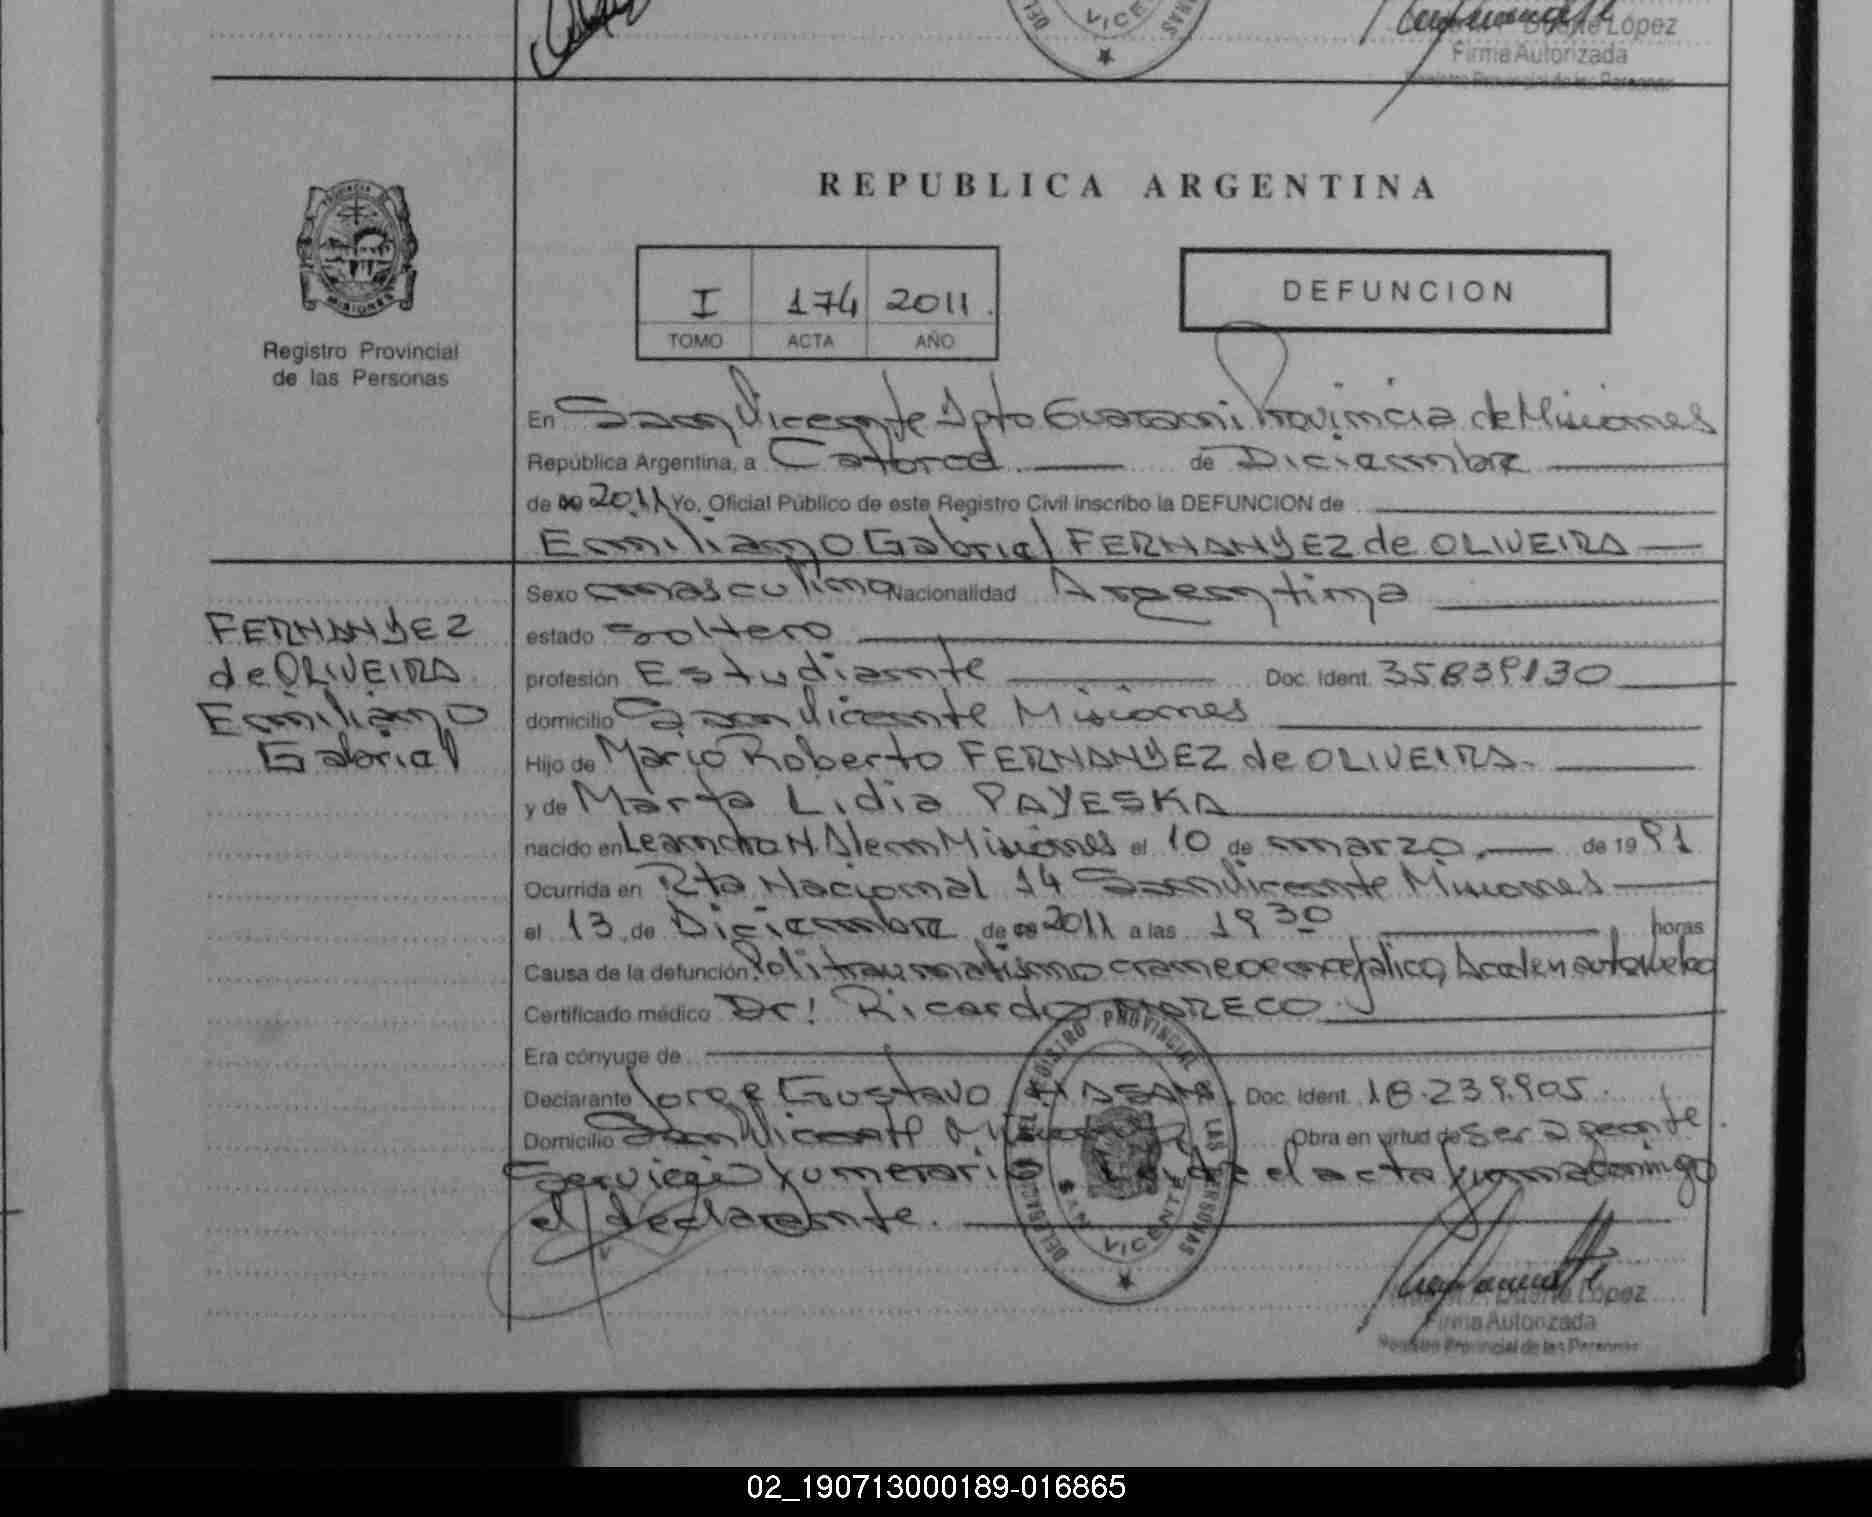 López
Firma Autorizada
Registro Provincial de las Personas
REPUBLICA ARGENTINA
I 174 2011
TOMO ACTA AÑO
DEFUNCION
PROVINCIA
MISIONES
Registro Provincial
de las Personas
En San Vicente Dpto Guarani Provincia de Misiones
República Argentina, a Catorce de Diciembre
de 2011 Yo, Oficial Público de este Registro Civil inscribo la DEFUNCION de
Emiliano Gabriel FERNANDEZ de OLIVEIRA
FERNANDEZ
de OLIVEIRA
Emiliano
Gabriel
Sexo masculino Nacionalidad Argentina
estado soltero
profesión Estudiante Doc. Ident. 35839130
domicilio San Vicente Misiones
Hijo de Mario Roberto FERNANDEZ de OLIVEIRA
y de Marta Lidia PAYESKA
nacido en Leandro N. Alem Misiones el 10 de marzo de 1991
Ocurrida en Rta Nacional 14 San Vicente Misiones
el 13 de Diciembre de 2011 a las 19 30 horas
Causa de la defunción Politraumatismo craneoencefalico,
Certificado médico Dr. Ricardo MORECO
Era cónyuge de
Declarante Jorge Gustavo Doc. Ident. 18.239.905
Domicilio San Vicente Obra en virtud de ser agente
el acta
el declarante.
DELEGACION DEL REGISTRO PROVINCIAL DE LAS PERSONAS
SAN VICENTE
López
Firma Autorizada
Registro Provincial de las Personas
02_190713000189-016865